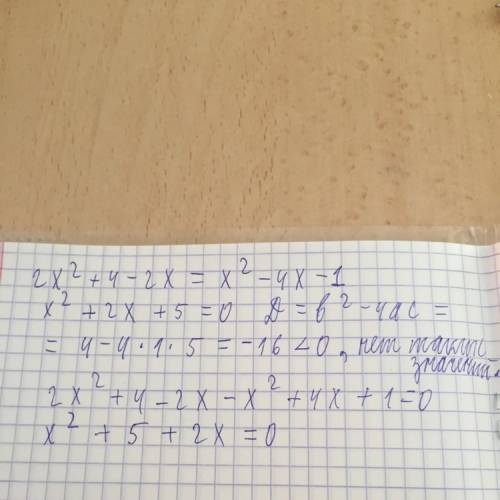 2x² + 4 - 2x = x² - 4x - 1
x² + 2x + 5 = 0 Д = в² - 4ac =
= 4 - 4 · 1 · 5 = -16 < 0, нет таких
значений.
2x² + 4 - 2x - x² + 4x + 1 = 0
x² + 5 + 2x = 0